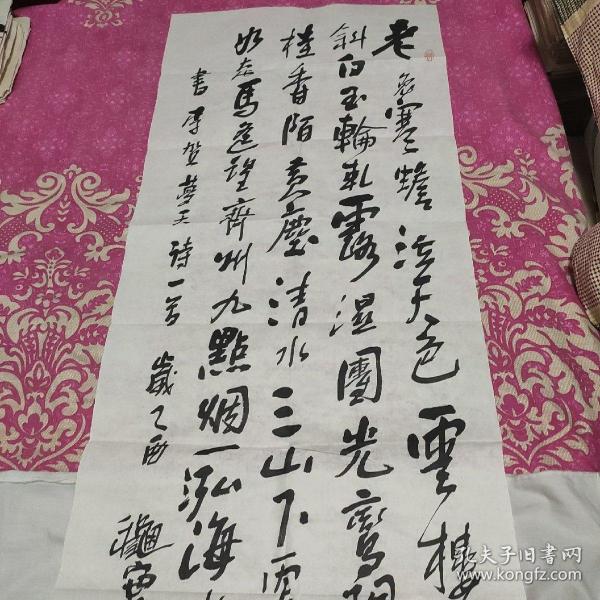 老兔寒蟾泣天色雲樓
斜白玉輪軋露濕團光鸞
桂香陌黃塵清水三山下
如走馬遥望齊州九點烟一泓海
書李賀夢天詩一首 歲乙酉
孔夫子旧书网
www.kongfz.com